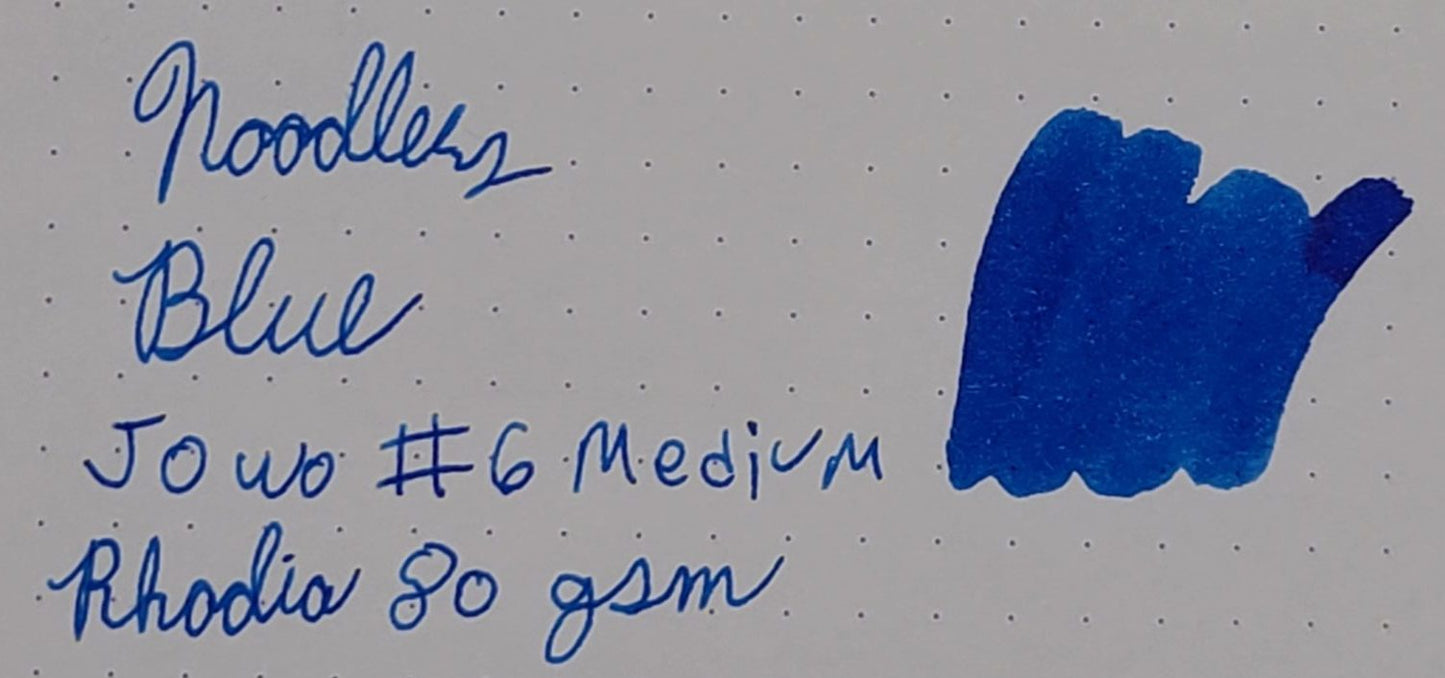 Noodlers
Blue
Jowo #6 Medium
Rhodia 80 gsm